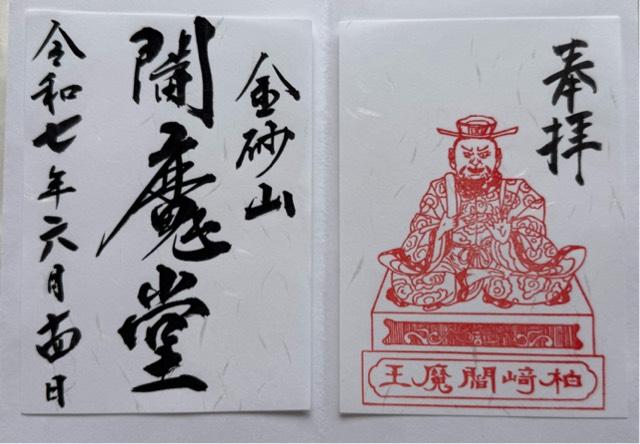 奉拝
柏崎閻魔王
金砂山
閻魔堂
令和七年六月十四日